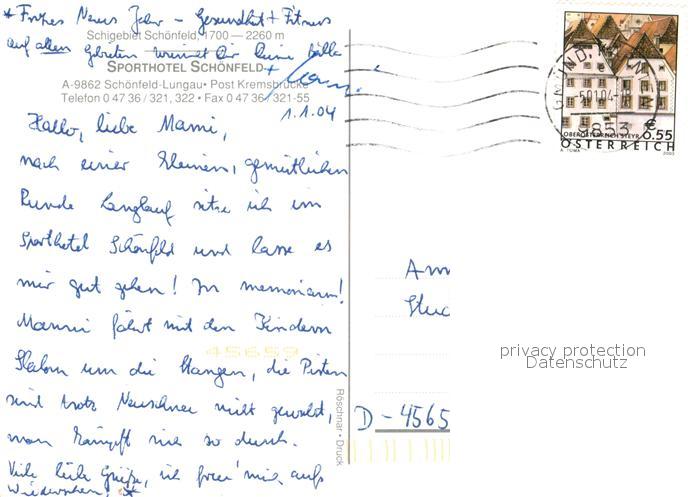 * Frohes Neues Jahr - Gesundheit + Fitness
Schigebiet Schönfeld, 1700 — 2260 m
auf allen Gebieten wünscht Dir Deine
SPORTHOTEL SCHÖNFELD
A-9862 Schönfeld-Lungau• Post Kremsbrücke
Telefon 0 47 36 / 321, 322 • Fax 0 47 36 / 321-55
1.1.04
Hallo, liebe Mami,
nach einer kleinen, gemütlichen
Runde Langlauf sitze ich im
Sporthotel Schönfeld und lasse es
mir gut gehen! In memoriam!
Manni fährt mit den Kindern
Slalom um die Stangen, die Pisten
sind trotz Neuschnee nicht gewalzt,
man kämpft sich so durch.
Viele liebe Grüße, ich freu' mich aufs
Wiedersehen!
45659
Röschnar • Druck
GMÜND
-5.01.04
9853
€ 0.55
OBERÖSTERREICH STEYR
ÖSTERREICH
A. TUMA
2003
D - 4565
privacy protection
Datenschutz